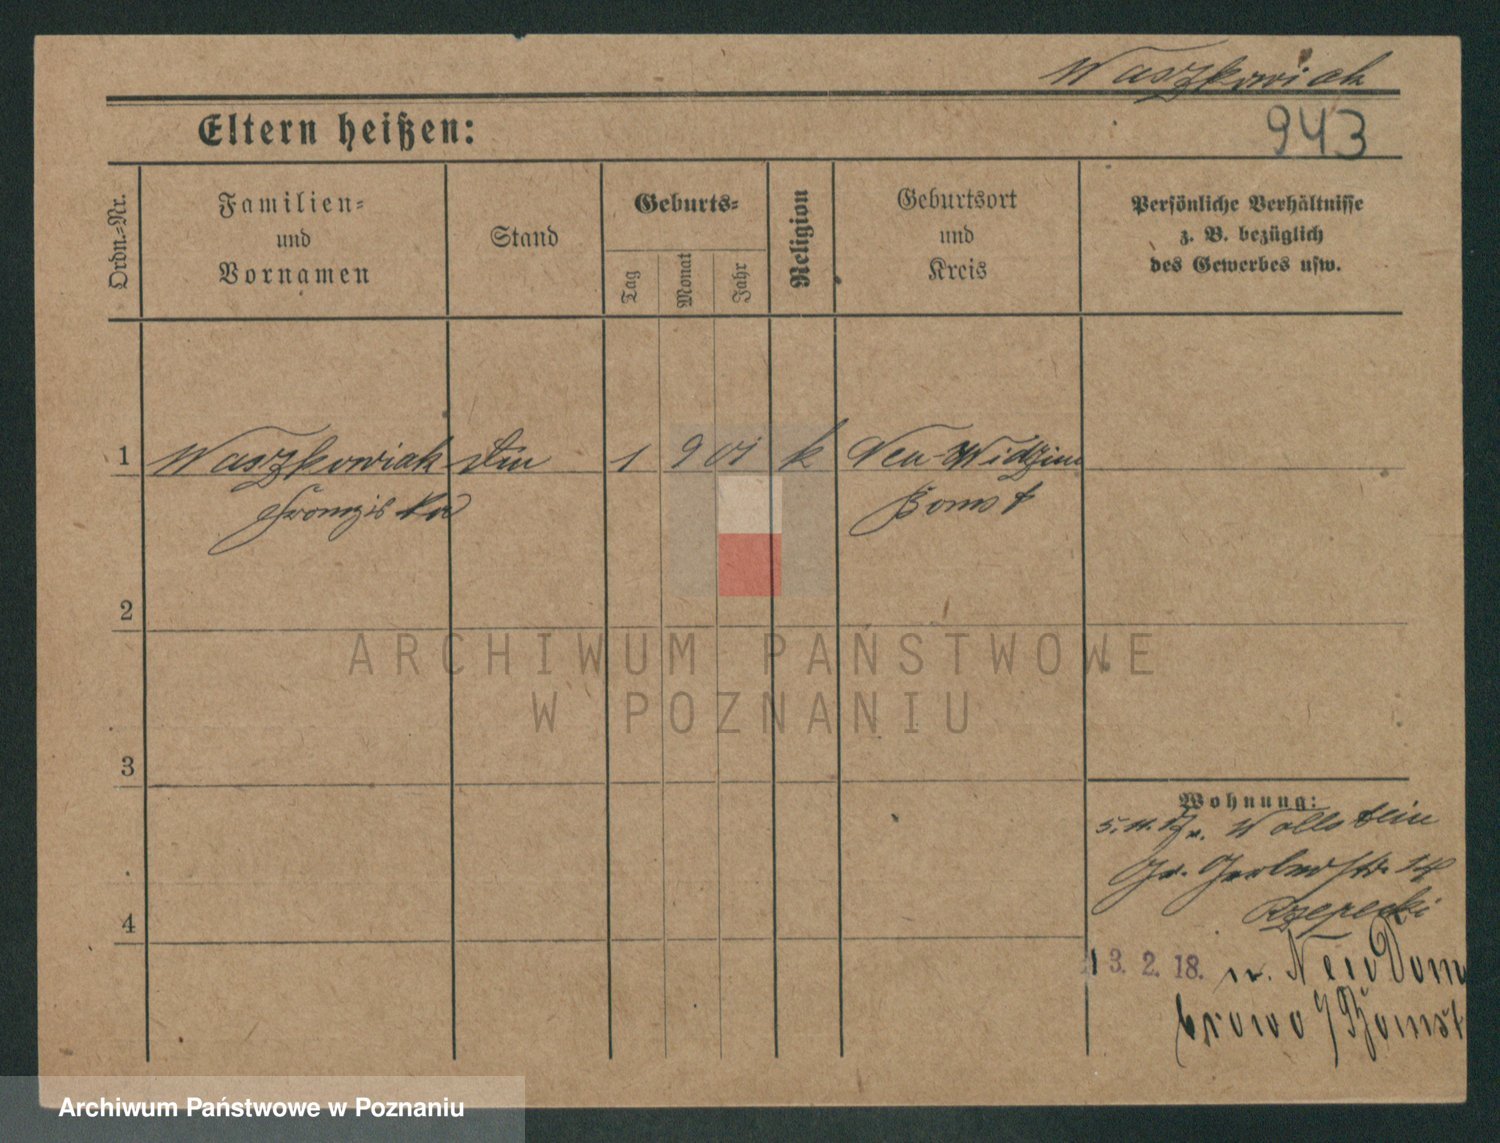 Waszkowiak
943
Eltern heißen:
Ordn.-Nr.
Familien-
und
Vornamen
Stand
Geburts-
Tag
Monat
Jahr
Religion
Geburtsort
und
Kreis
Persönliche Verhältnisse
z. B. bezüglich
des Gewerbes usw.
1 Waszkowiak 1 9 01 k Neu-Widzim
Franziska Bomst
2
ARCHIWUM PAŃSTWOWE
W POZNANIU
3
Wohnung:
5. 11. 17 v. Wollstein
Gr. Gerberstr. 14
Rzepecki
13. 2. 18. n. Neu Dom
browo / Bomst
4
Archiwum Państwowe w Poznaniu